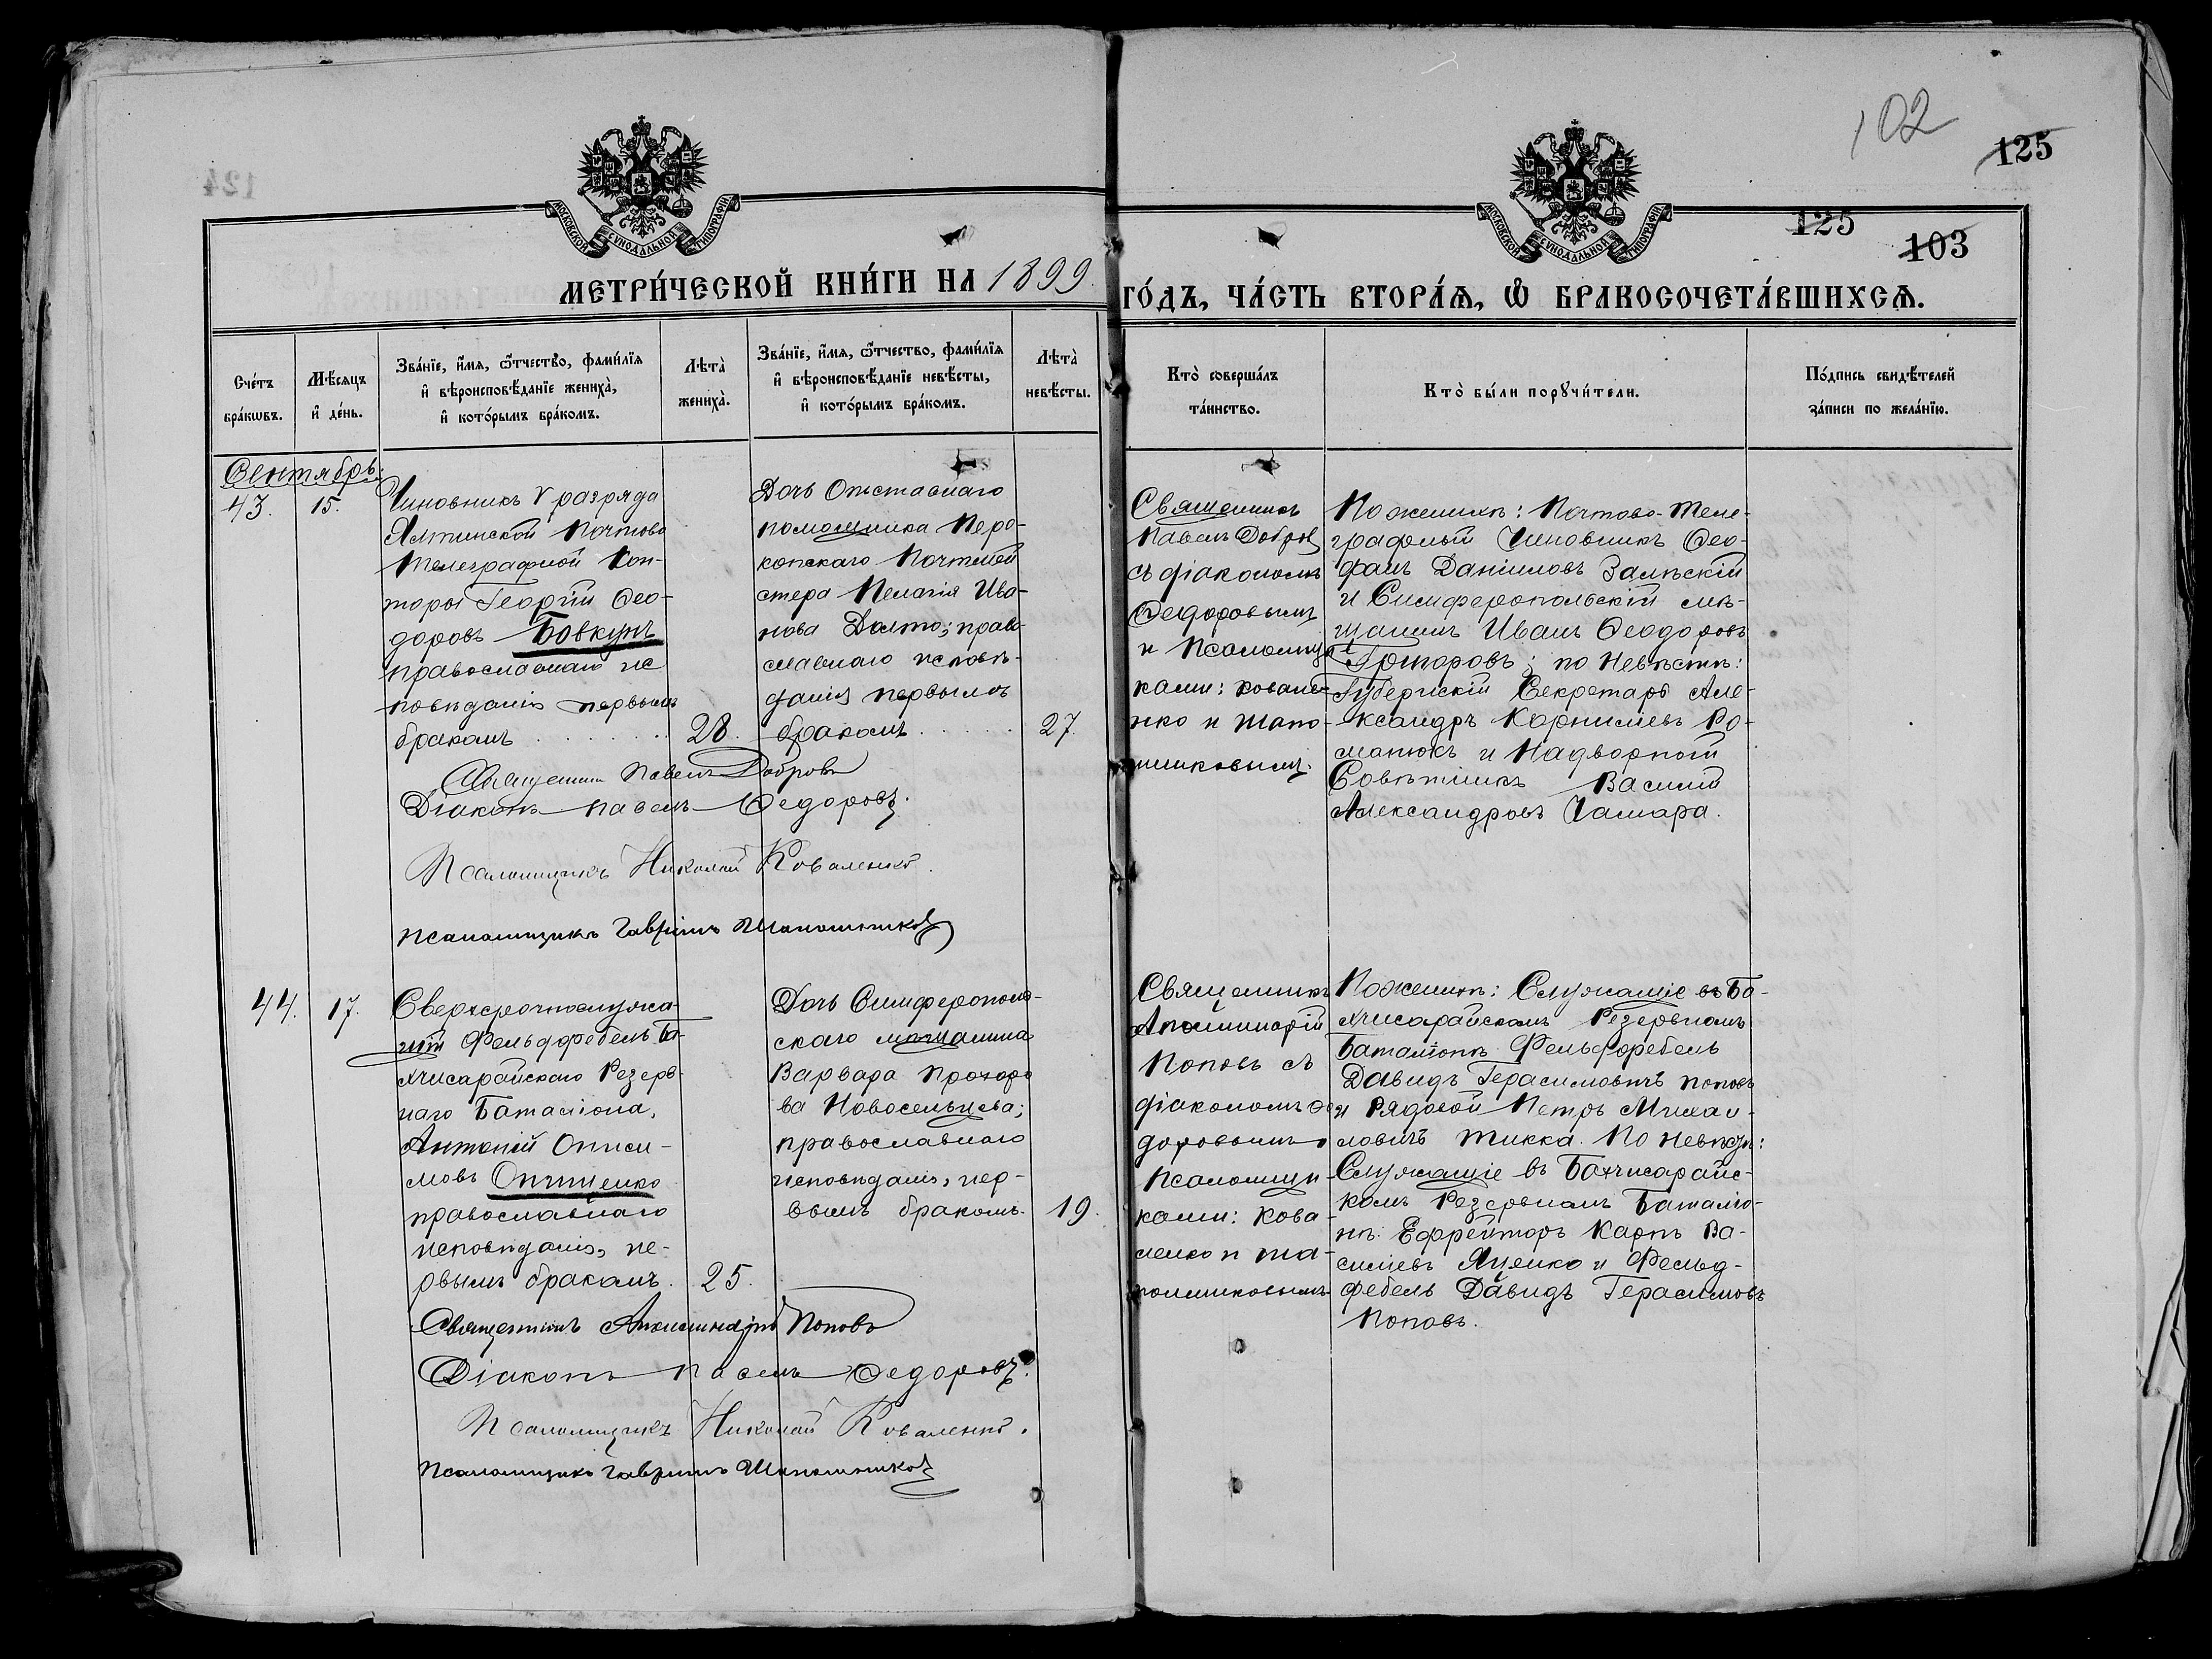 102
125
125
103
МОСКОВСКОЙ СѴНОДАЛЬНОЙ ТИПОГРАФІИ
МОСКОВСКОЙ СѴНОДАЛЬНОЙ ТИПОГРАФІИ
МЕТРИ́ЧЕСКОЙ КНИ́ГИ НА 1899
ГО́ДЪ, ЧА́СТЬ ВТОРА́Ѧ, Ѡ҆ БРАКОСОЧЕТА́ВШИХСѦ.
Сче́тъ
бра́кѡвъ.
Мѣ́сѧцъ
и҆ де́нь.
Зва́нїе, и҆́мѧ, ѻ҆́тчество, фами́лїѧ
и҆ вѣроисповѣ́данїе жениха̀,
и҆ кото́рымъ бра́комъ.
Лѣта̀
жениха̀.
Зва́нїе, и҆́мѧ, ѻ҆́тчество, фами́лїѧ
и҆ вѣроисповѣ́данїе невѣ́сты,
и҆ кото́рымъ бра́комъ.
Лѣта̀
невѣ́сты.
Кто̀ соверша́лъ
та́инство.
Кто̀ бы́ли порꙋчи́тели.
По́дпись свидѣ́телей
за́писи по жела́нїю.
Сентябрь.
43.
15.
Чиновникъ V разряда
Ялтинской Почтово
Телеграфной Кон-
торы Георгій Ѳео-
доровъ Бовкунъ
православнаго ис
повѣданія первымъ
бракомъ
28.
Дочь Отставнаго
помощника Перо-
копскаго Почтмей
стера Пелагія Ива-
нова Долто; право-
славнаго исповѣ-
данія первымъ
бракомъ
27.
Священникъ
Павелъ Добров
съ діакономъ
Ѳедоровымъ
и Псаломщи
ками: Ковале-
нко и Шапо-
шниковымъ.
По женихѣ: Почтово-Теле-
графный Чиновникъ Ѳео-
фанъ Даниловъ Залѣскій
и Симферопольскій мѣ-
щанинъ Иванъ Ѳеодоровъ
Григоровъ; по Невѣстѣ:
Губернскій Секретарь Але-
ксандръ Корниліевъ Ро-
манюкъ и Надворной
Совѣтникъ Василій
Александровъ Чамара.
Священникъ Павелъ Добровъ
Діаконъ Павелъ Ѳедоровъ.
Псаломщикъ Николай Коваленко.
Псаломщикъ Гавріилъ Шапошниковъ
44.
17.
Сверхсрочнослужа-
щій Фельдфебель Ба-
хчисарайскаго Резерв-
наго Баталіона,
Антоній Ониси-
мовъ Онищенко
православнаго
исповѣданія, пе-
рвымъ бракомъ.
25.
Дочь Симферополь-
скаго мѣщанина
Варвара Прохоро
ва Новосельцева;
православнаго
исповѣданія, пер-
вымъ бракомъ
19.
Священникъ
Аполлинарій
Поповъ съ
діакономъ Ѳе
доровымъ и
Псаломщи-
ками: Кова-
ленко и Ша-
пошниковымъ
По женихѣ: Служащіе въ Ба-
хчисарайскомъ Резервномъ
Баталіонѣ Фельдфебель
Давидъ Герасимовичъ Поповъ
и Рядовой Петръ Михаи-
ловичъ Тикка. По невѣстѣ:
Служащіе въ Бахчисарайс-
комъ Резервномъ Баталіо-
нѣ: Ефрейторъ Карпъ Ва-
силіевъ Яценко и Фельд-
фебель Давидъ Герасимовъ
Поповъ.
Священникъ Аполлинарій Поповъ
Діаконъ Павелъ Ѳедоровъ.
Псаломщикъ Николай Коваленко.
Псаломщикъ Гавріилъ Шапошниковъ